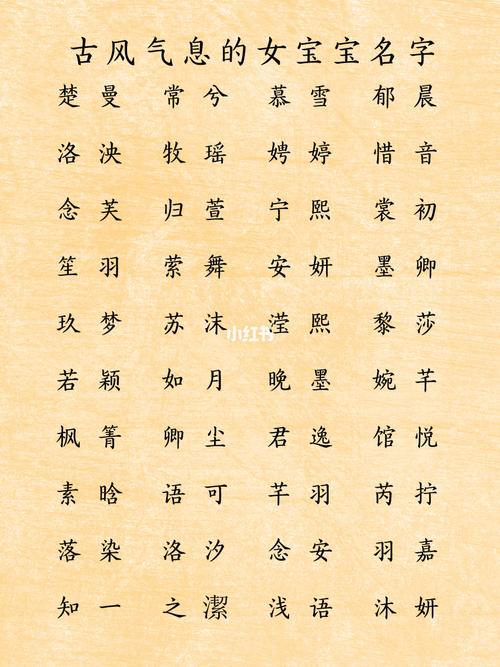 古风气息的女宝宝名字
楚曼 常兮 慕雪 郁晨
洛泱 牧瑶 娉婷 惜音
念芙 归萱 宁熙 裳初
笙羽 萦舞 安妍 墨卿
玖梦 苏沫 滢熙 黎莎
小红书
若颖 如月 晚墨 婉芊
枫箐 卿尘 君逸 馆悦
素晗 语可 芊羽 芮拧
落染 洛汐 念安 羽嘉
知一 之潔 浅语 沐妍